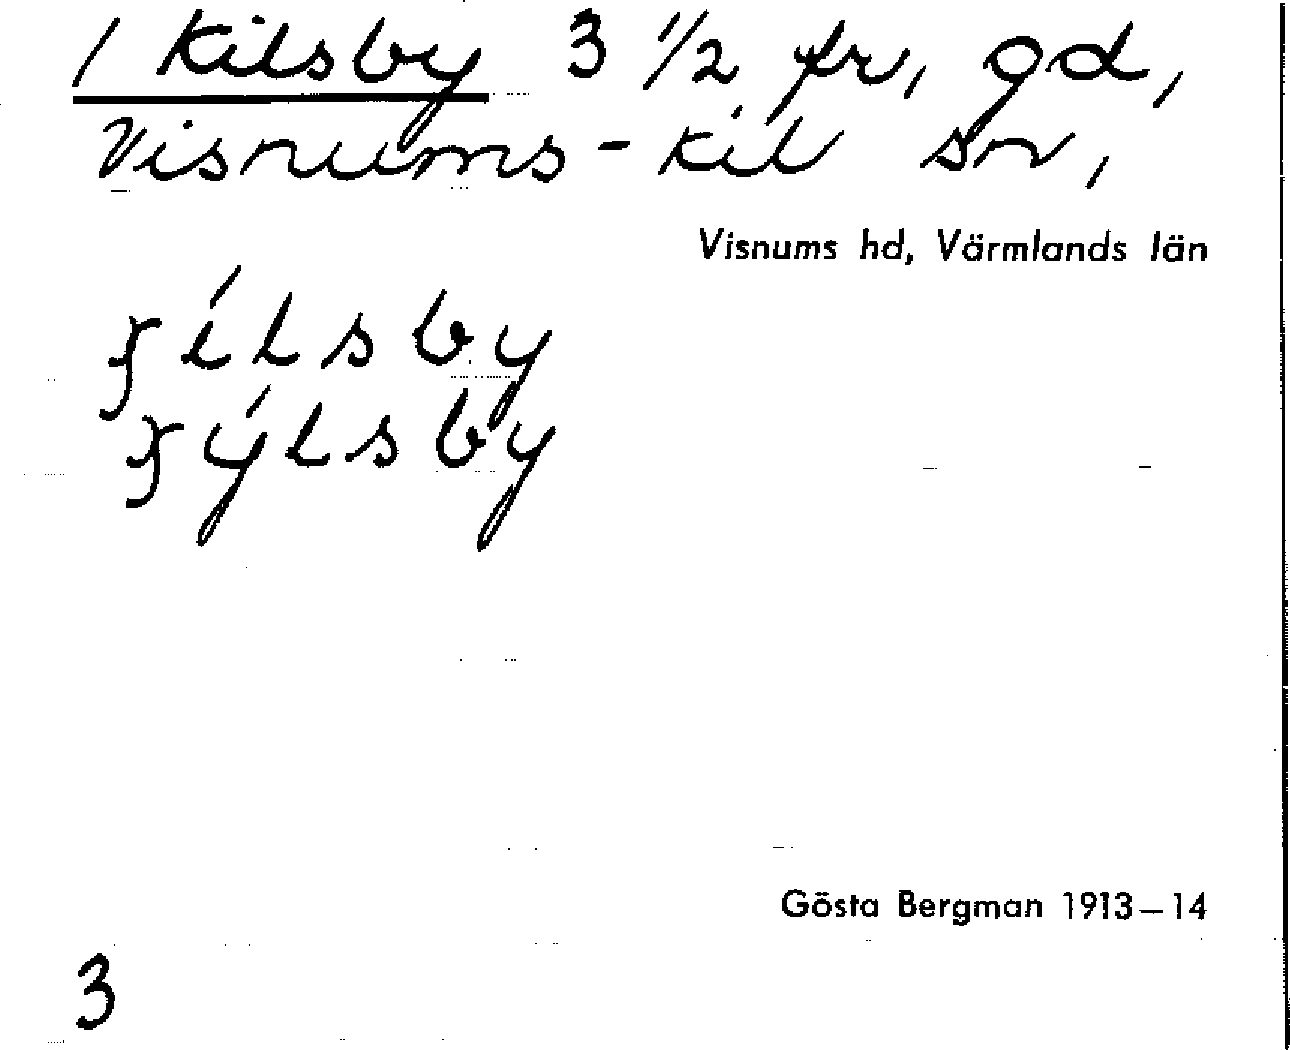 / Kilsby 3 1/2 fr, gd,
Visnums-Kil sn,
Visnums hd, Värmlands län
ʄílsby
ʄýlsby
Gösta Bergman 1913–14
3